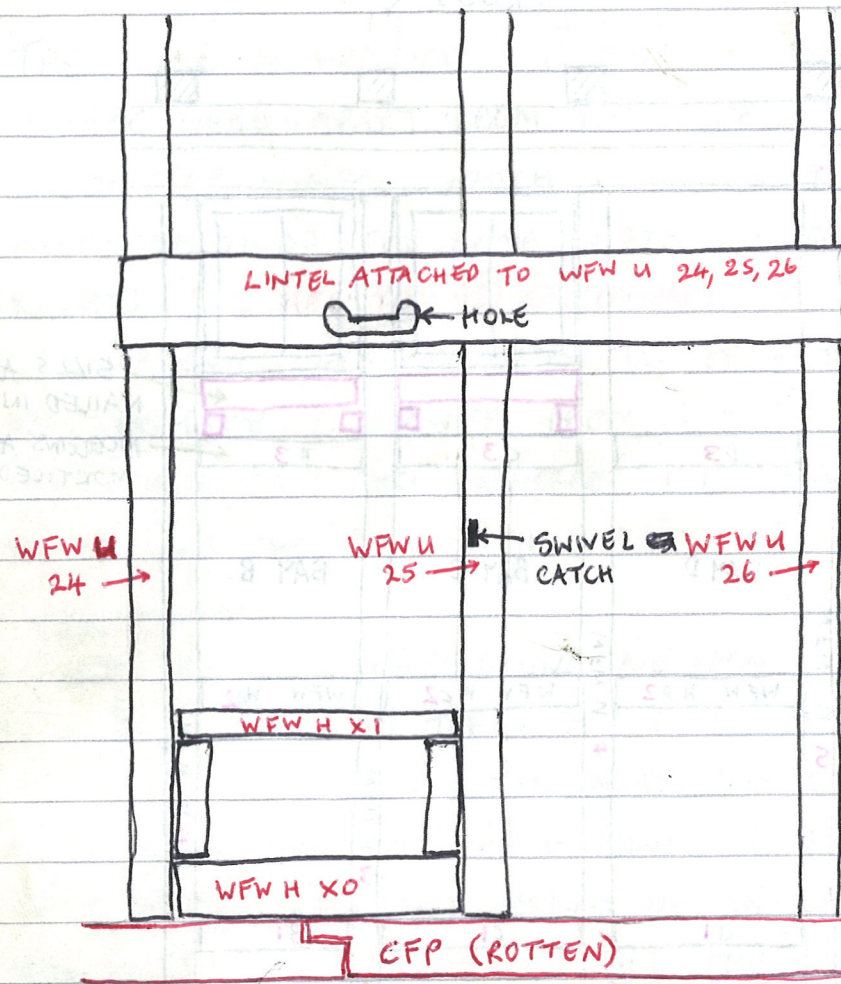 LINTEL ATTACHED TO WFW U 24, 25, 26
HOLE
WFW U
24
WFW U
25
SWIVEL
CATCH
WFW U
26
WFW H X1
WFW H X0
CFP (ROTTEN)